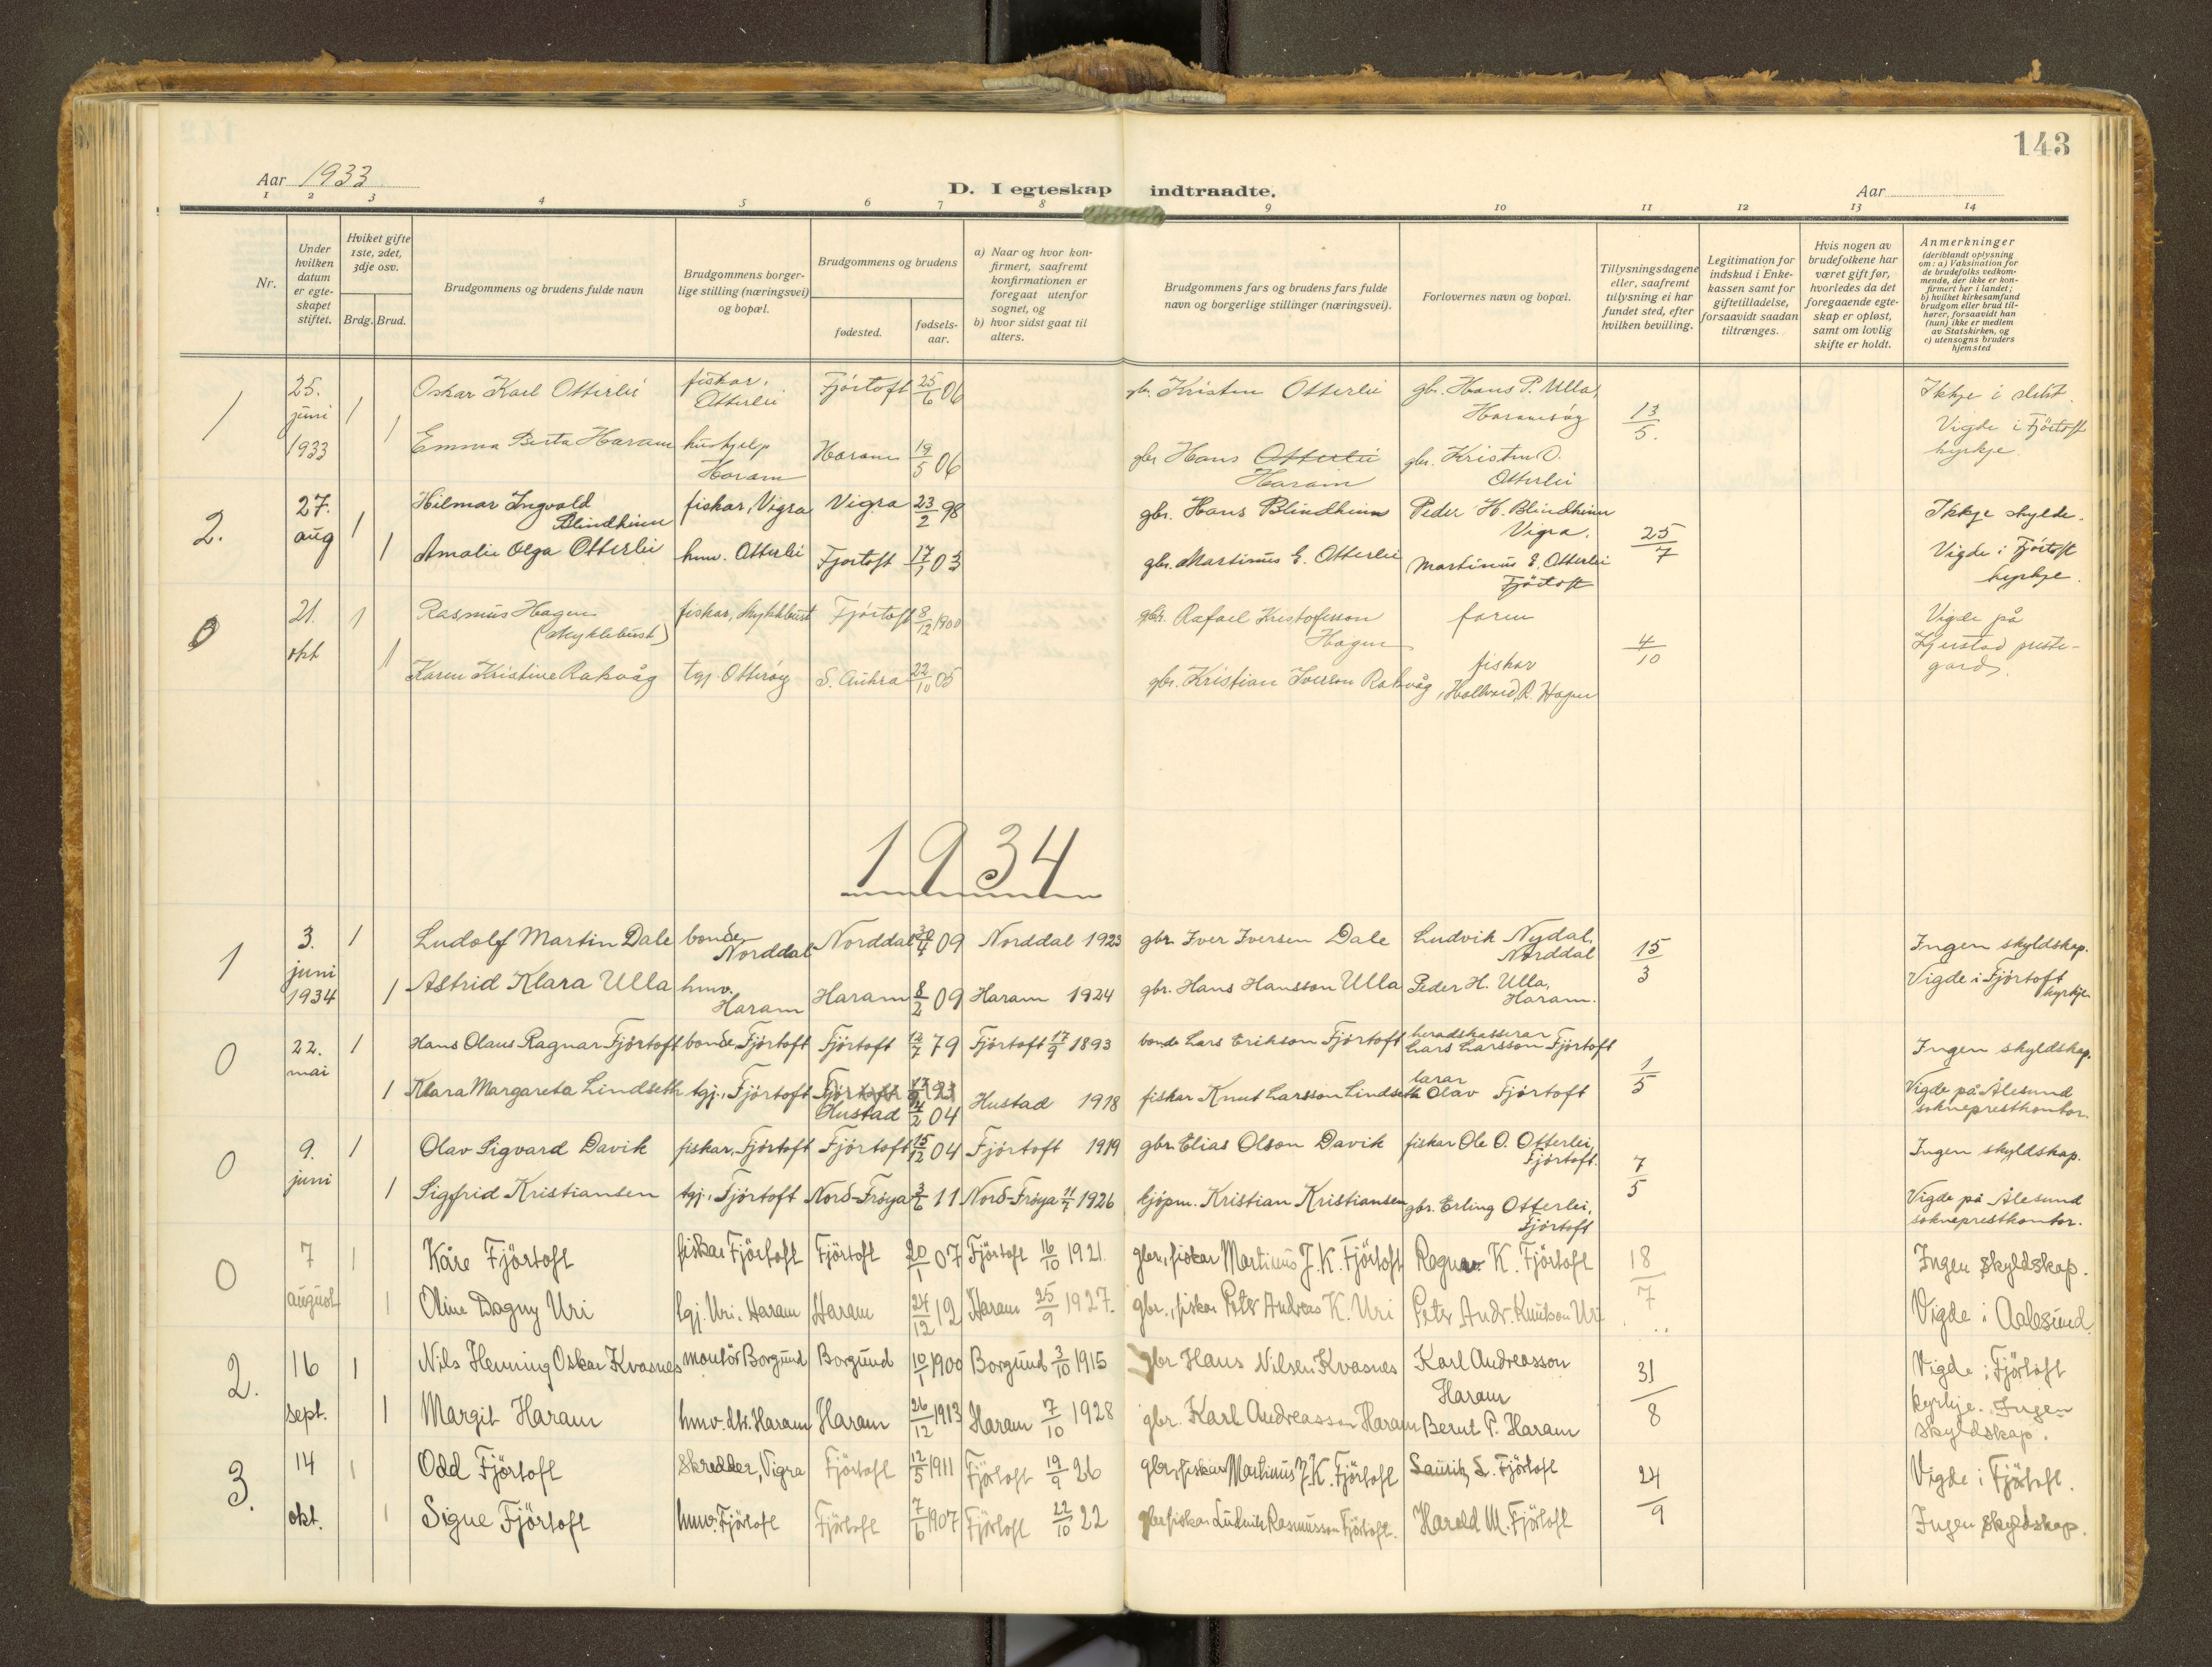 143
Aar 1933
D. I egteskap indtraadte.
Aar
1 2 3 4 5 6 7 8 9 10 11 12 13 14
Nr.
Under hvilken datum er egte-skapet stiftet.
Hviket gifte 1ste, 2det, 3dje osv.
Brdg. Brud.
Brudgommens og brudens fulde navn
Brudgommens borger-lige stilling (næringsvei) og bopæl.
Brudgommens og brudens
fødested.
fødsels-aar.
a) Naar og hvor kon-firmert, saafremt konfirmationen er foregaat utenfor sognet, og
b) hvor sidst gaat til alters.
Brudgommens fars og brudens fars fulde navn og borgerlige stillinger (næringsvei).
Forlovernes navn og bopæl.
Tillysningsdagene eller, saafremt tillysning ei har fundet sted, efter hvilken bevilling.
Legitimation for indskud i Enke-kassen samt for giftetilladelse, forsaavidt saadan tiltrænges.
Hvis nogen av brudefolkene har været gift før, hvorledes da det foregaaende egte-skap er opløst, samt om lovlig skifte er holdt.
Anmerkninger (deriblandt oplysning om: a) Vaksination for de brudefolks vedkom-mende, der ikke er kon-firmert her i landet; b) hvilket kirkesamfund brudgom eller brud til-hører, forsaavidt han (hun) ikke er medlem av Statskirken, og c) utensogns bruders hjemsted
1 25. juni 1933 1 Oskar Karl Otterlei fiskar, Otterlei Fjörtoft 25/6 06 gbr. Kristen Otterlei gbr. Hans P. Ulla, Haramsöy 13/5. Ikkje i slekt. Vigde i Fjörtoft kyrkje.
1 Emma Berta Haram hushjelp Haram Haram 19/5 06 gbr Hans Otterlei Haram gbr. Kristen O. Otterlei
2. 27. aug 1 Hilmar Ingvald Blindheim fiskar, Vigra Vigra 23/2 98 gbr. Hans Blindheim Peder H. Blindheim Vigra. 25/7 Ikkje skylde. Vigde i Fjörtoft kyrkje.
1 Amalie Olga Otterlei hmv. Otterlei Fjortoft 17/1 03 gbr. Martinus E. Otterlei Martinus E. Otterlei Fjörtoft
0 21. okt 1 Rasmus Hagen (Myklebust) fiskar, Myklebust Fjörtoft 8/12 1900 gbr. Rafael Kristoffersson Hagen faren 4/10 Vigde på prestegard.
1 Karen Kristine Rakvåg tgj. Otteröy S. Aukra 22/10 05 gbr. Kristian Iverson Rakvåg fiskar Hallvard R. Hagen
1934
1 3. juni 1934 1 Ludolf Martin Dale bonde Norddal Norddal 30/4 09 Norddal 1923 gbr. Iver Iversen Dale Ludvik Nydal, Norddal 15/3 Ingen skyldskap. Vigde i Fjörtoft kyrkje
1 Astrid Klara Ulla hmv. Haram Haram 8/2 09 Haram 1924 gbr. Hans Hansson Ulla Peder H. Ulla, Haram.
0 22. mai 1 Hans Olaus Ragnar Fjörtoft bonde, Fjörtoft Fjörtoft 12/7 79 Fjörtoft 17/9 1893 bonde Lars Erikson Fjörtoft heradskasserar Lars Larsson Fjörtoft 1/5 Ingen skyldskap. Vigde på Ålesund sokneprestkontor.
1 Klara Margareta Lindseth tgj., Fjörtoft Fjörtoft Hustad 4/2 04 Hustad 1918 fiskar Knut Larsson Lindseth lærar Olav Fjörtoft
0 9. juni 1 Olav Sigvard Davik fiskar, Fjörtoft Fjörtoft 15/12 04 Fjörtoft 1919 gbr. Elias Olson Davik fiskar Ole O. Otterlei, Fjörtoft. 7/5 Ingen skyldskap. Vigde på Ålesund sokneprestkontor.
1 Sigfrid Kristiansen tgj., Fjörtoft Nord-Fröya 3/6 11 Nord-Fröya 11/7 1926 kjöpm. Kristian Kristiansen gbr. Erling Otterlei, Fjörtoft
0 7 august 1 Kåre Fjörtoft fiskar Fjörtoft Fjörtoft 20/1 07 Fjörtoft 16/10 1921. gbr., fiskar Martinus J. K. Fjörtoft Ragnar K. Fjörtoft 18/7 Ingen skyldskap. Vigde i Aalesund.
1 Oline Dagny Uri tgj. Uri, Haram Haram 24/12 12 Haram 25/9 1927. gbr., fiskar Peter Andreas K. Uri Peter Andr. Knutson Uri
2. 16 sept. 1 Nils Henning Oskar Kvasnes montör Borgund Borgund 10/1 1900 Borgund 3/10 1915 gbr Hans Nilsen Kvasnes Karl Andreasson Haram 31/8 Vigde i Fjörtoft kyrkje. Ingen skyldskap.
1 Margit Haram hmv. dtr. Haram Haram 26/12 1913 Haram 7/10 1928 gbr. Karl Andreasson Haram Bernt P. Haram
3. 14 okt. 1 Odd Fjörtoft Skredder, Vigra Fjörtoft 12/5 1911 Fjörtoft 19/9 26 gbr, fiskar Martinus J. K. Fjörtoft Lauritz L. Fjörtoft 24/9 Vigde i Fjörtoft. Ingen skyldskap.
1 Signe Fjörtoft hmv. Fjörtoft Fjörtoft 7/6 1907 Fjörtoft 22/10 22 gbr fiskar Ludvik Rasmusson Fjörtoft. Harald M. Fjörtoft